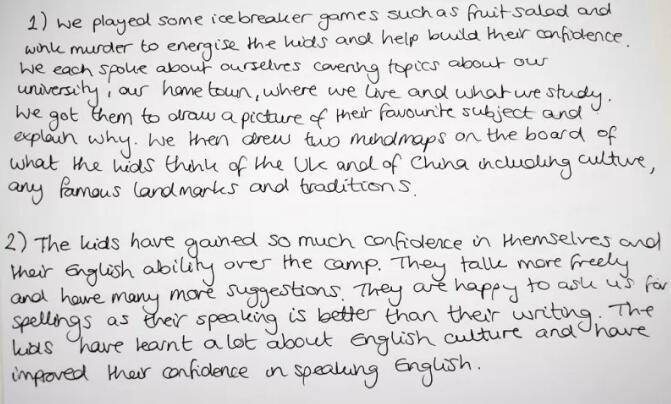 1) we played some icebreaker games such as fruit salad and
wink murder to energise the kids and help build their confidence.
We each spoke about ourselves covering topics about our
university, our home town, where we live and what we study.
We got them to draw a picture of their favourite subject and
explain why. We then drew two mindmaps on the board of
what the kids think of the UK and of China including culture,
any famous landmarks and traditions.
2) The kids have gained so much confidence in themselves and
their English ability over the camp. They talk more freely
and have many more suggestions. They are happy to ask us for
spellings as their speaking is better than their writing. The
kids have learnt a lot about English culture and have
improved their confidence in speaking English.